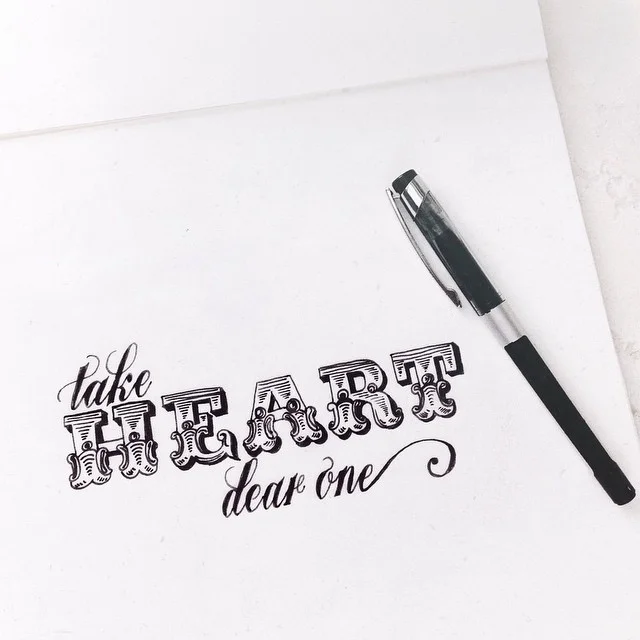 take
HEART
dear one